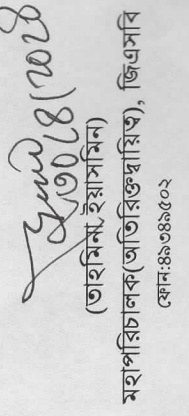 ৩০/৪/২০২৪
(তাহমিনা ইয়াসমিন)
মহাপরিচালক(অতিরিক্ত দায়িত্ব), জিএসবি
ফোন:৪৯৩৪৯৫০২